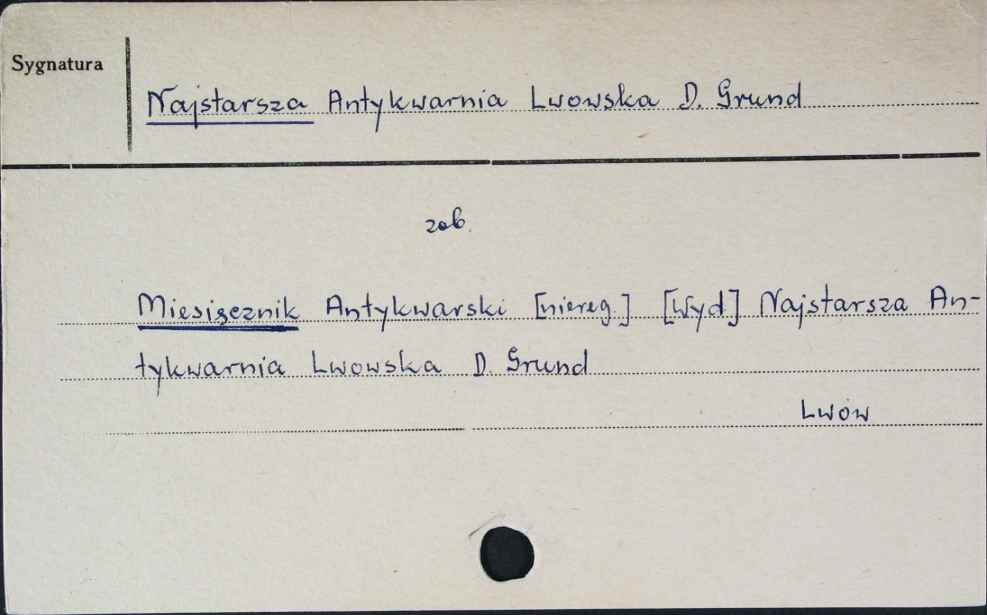 Sygnatura
Najstarsza Antykwarnia Lwowska D. Grund
zob.
Miesięcznik Antykwarski [niereg.] [Wyd] Najstarsza An-
tykwarnia Lwowska D. Grund
Lwów